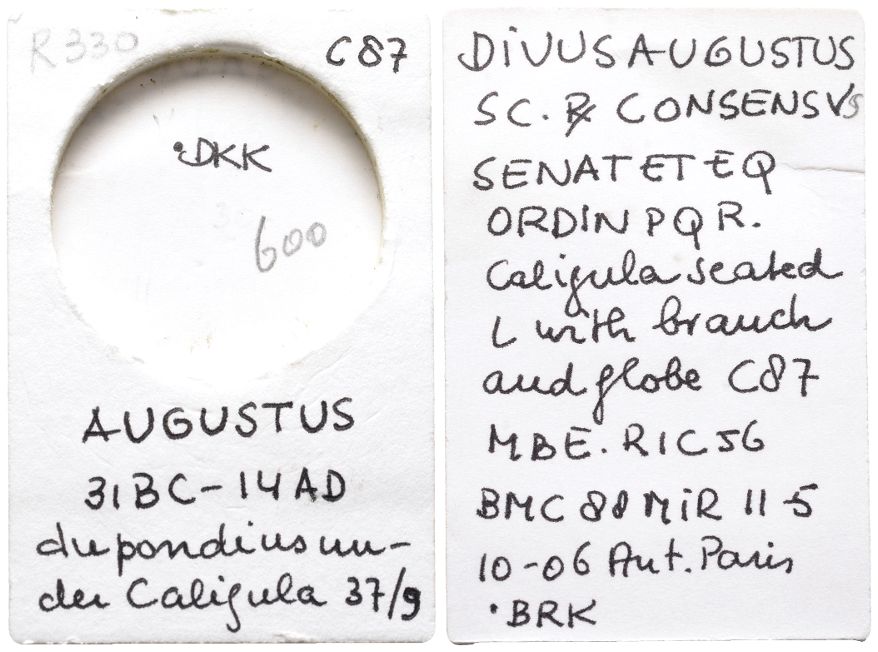 R330 C87
·DKK
600
AUGUSTUS
31BC-14AD
dupondius un-
der Caligula 37/9
DIVUS AUGUSTUS
SC. CONSENSVS
SENAT ET EQ
ORDIN PQR.
Caligula seated
L with branch
and globe C87
MBE. RIC56
BMC 88 MiR 11-5
10-06 Aut. Paris
·BRK